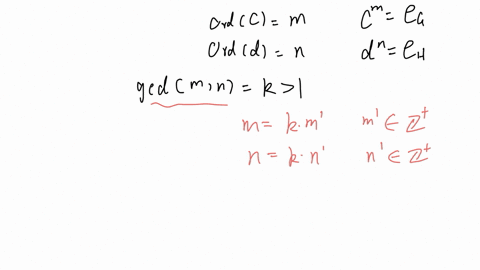 Ord(C) = m    C^m = e_G
Ord(d) = n    d^n = e_H
gcd(m,n) = k > 1
m = k · m'    m' ∈ ℤ^+
n = k · n'    n' ∈ ℤ^+